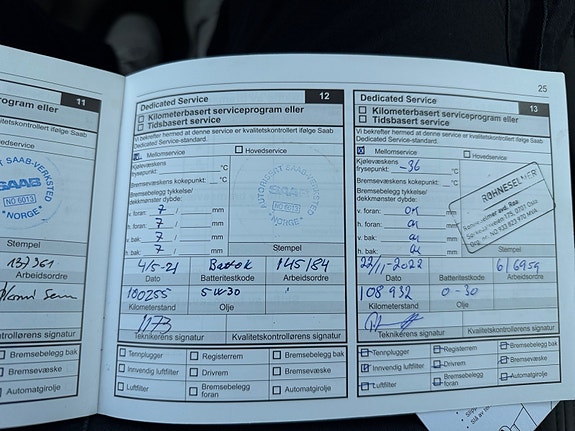 11
ogram eller
alitetskontrollert ifølge Saab
AUTORISERT SAAB-VERKSTED
SAAB
NO 6013
*NORGE*
Stempel
137361
Arbeidsordre
ntrollørens signatur
Bremsebelegg bak
Bremsevæske
Automatgirolje
Dedicated Service
12
Kilometerbasert serviceprogram eller
Tidsbasert service
Vi bekrefter hermed at denne service er kvalitetskontrollert ifølge Saab
Dedicated Service-standard.
Mellomservice
Hovedservice
Kjølevæskens
frysepunkt: °C
Bremsevæskens kokepunkt: °C
Bremsebelegg tykkelse/
dekkmønster dybde:
v. foran: 7 / mm
h. foran: 7 / mm
v. bak: 7 / mm
h. bak: 7 / mm
AUTORISERT SAAB-VERKSTED
SAAB
NO 6013
*NORGE*
Stempel
4/5-21 Batt ok 145184
Dato Batteritestkode Arbeidsordre
100255 5W-30
Kilometerstand Olje
1173
Teknikerens signatur Kvalitetskontrollørens signatur
Tennplugger Registerrem Bremsebelegg bak
Innvendig luftfilter Drivrem Bremsevæske
Luftfilter Bremsebelegg foran Automatgirolje
25
Dedicated Service
13
Kilometerbasert serviceprogram eller
Tidsbasert service
Vi bekrefter hermed at denne service er kvalitetskontrollert ifølge Saab
Dedicated Service-standard.
Mellomservice
Hovedservice
Kjølevæskens
frysepunkt: -36 °C
Bremsevæskens kokepunkt: °C
Bremsebelegg tykkelse/
dekkmønster dybde:
v. foran: / mm
h. foran: / mm
v. bak: / mm
h. bak: / mm
RØHNESELMER
Stempel
22/1-2022 616959
Dato Batteritestkode Arbeidsordre
108 932 0-30
Kilometerstand Olje
Teknikerens signatur Kvalitetskontrollørens signatur
Tennplugger Registerrem Bremsebelegg bak
Innvendig luftfilter Drivrem Bremsevæske
Luftfilter Bremsebelegg foran Automatgirolje